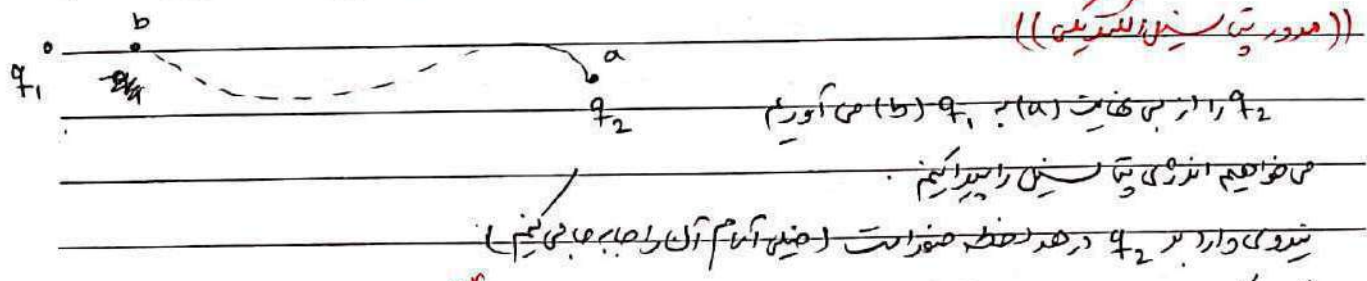 ((مرور پتانسیل الکتریکی))
b
a
q₁
q₂
q₂ را از بی نهایت (a) به q₁ (b) می آوریم
می خواهیم انرژی پتانسیل را پیدا کنیم.
نیروی وارد بر q₂ در هر لحظه صفر است (خیلی آرام آن را جابه جا می کنیم)